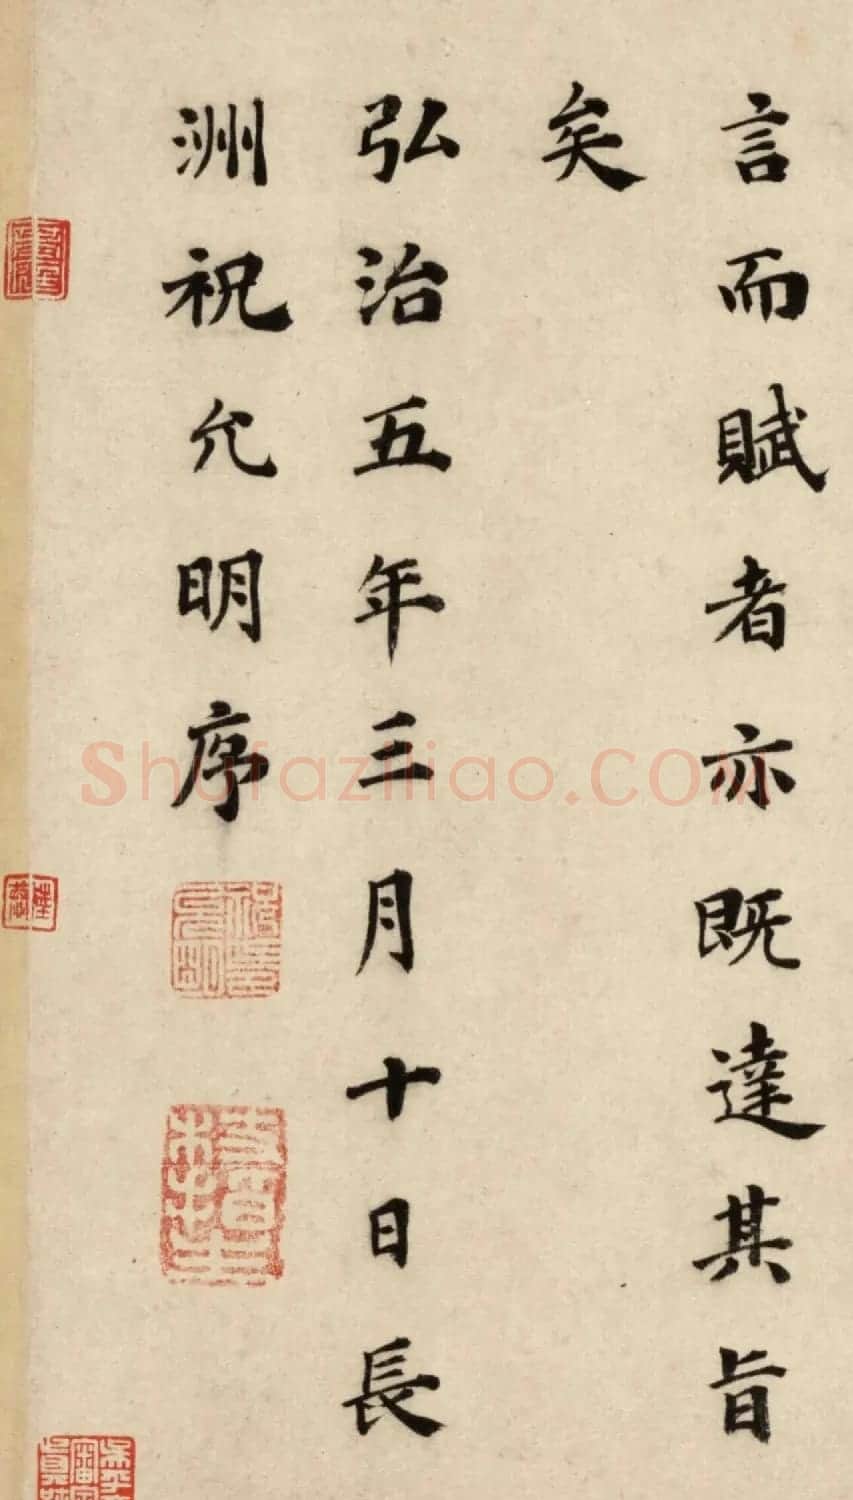 言而賦者亦既達其旨
矣
弘治五年三月十日長
洲祝允明序
Shufaziliao.COM